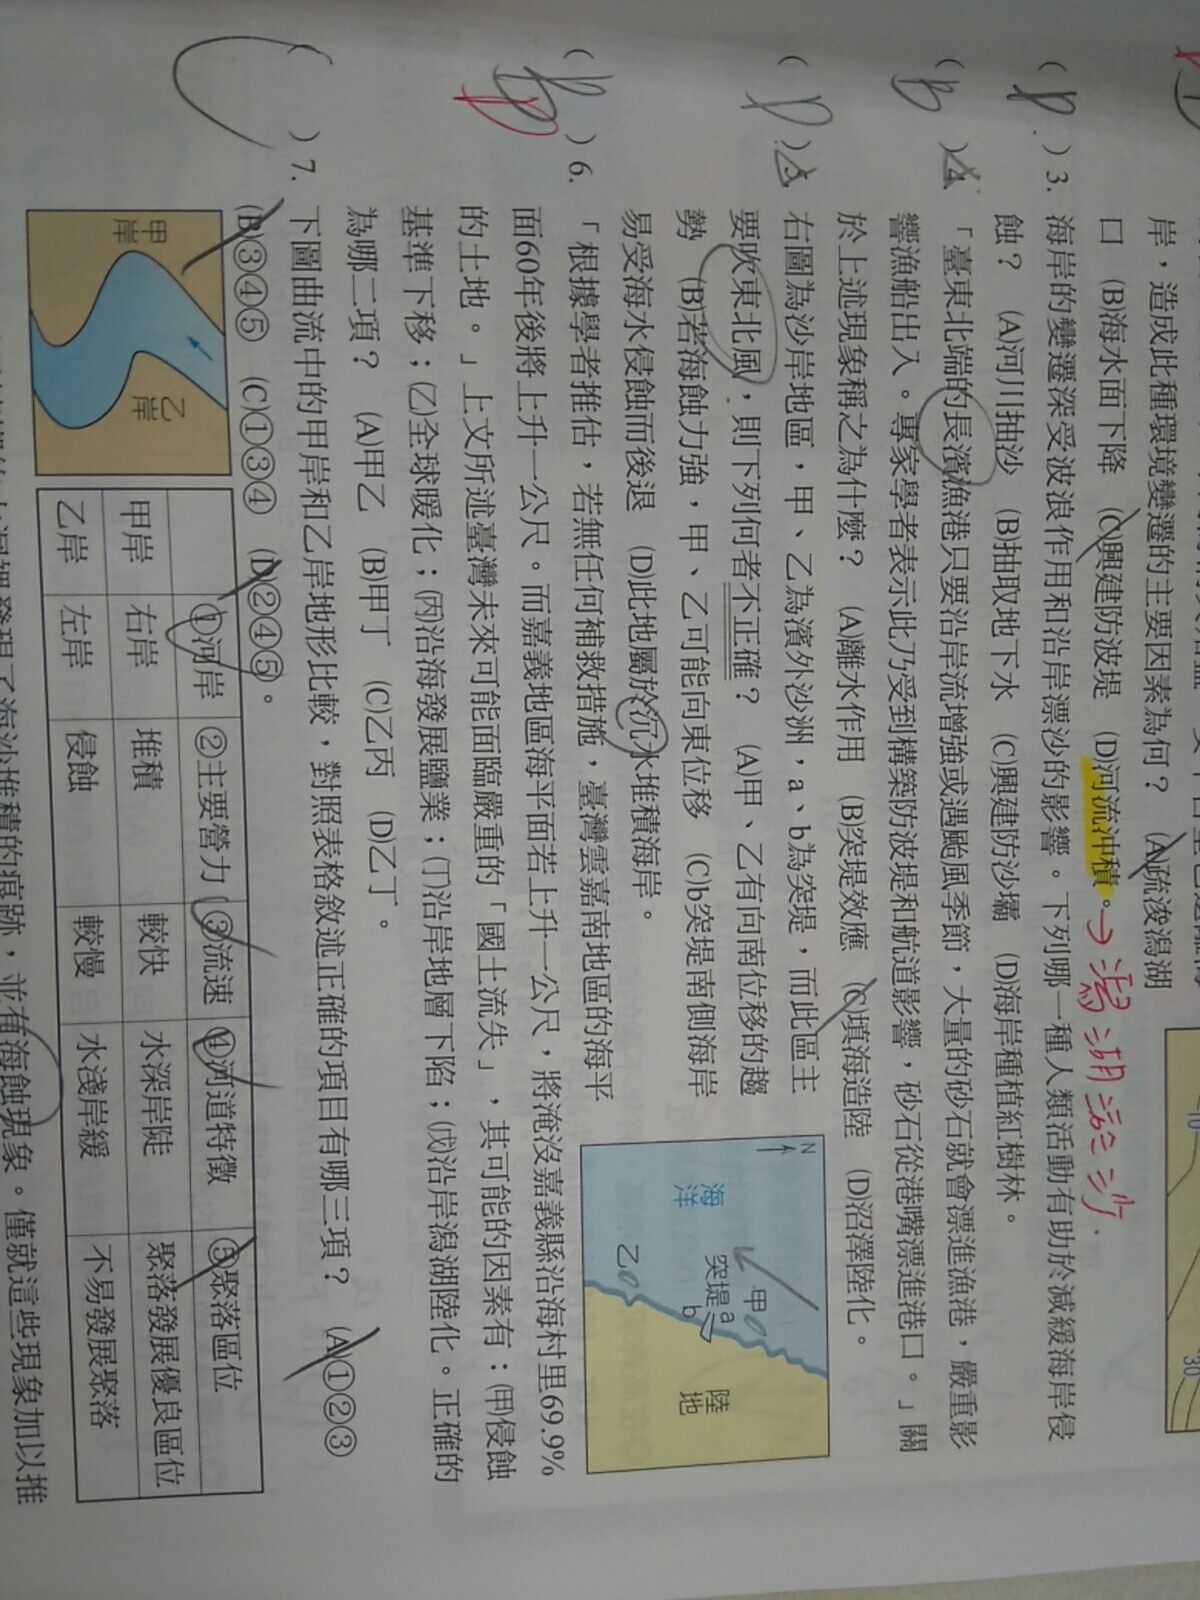 岸，造成此種環境變遷的主要因素為何？ (A)疏浚潟湖
口 (B)海水面下降 (C)興建防波堤 (D)河流沖積。→潟湖淤沙.
( D ) 3. 海岸的變遷深受波浪作用和沿岸漂沙的影響。下列哪一種人類活動有助於減緩海岸侵
蝕？ (A)河川抽沙 (B)抽取地下水 (C)興建防沙壩 (D)海岸種植紅樹林。
( B ) 4. 「臺東北端的長濱漁港只要沿岸流增強或遇颱風季節，大量的砂石就會漂進漁港，嚴重影
響漁船出入。專家學者表示此乃受到構築防波堤和航道影響，砂石從港嘴漂進港口。」關
於上述現象稱之為什麼？ (A)離水作用 (B)突堤效應 (C)填海造陸 (D)沼澤陸化。
( D ) 5. 右圖為沙岸地區，甲、乙為濱外沙洲，a、b為突堤，而此區主
要吹東北風，則下列何者不正確？ (A)甲、乙有向南位移的趨
勢 (B)若海蝕力強，甲、乙可能向東位移 (C)b突堤南側海岸
易受海水侵蝕而後退 (D)此地屬於沉水堆積海岸。
N
海洋
甲
突堤
a
b
乙
陸地
( D ) 6. 「根據學者推估，若無任何補救措施，臺灣雲嘉南地區的海平
面60年後將上升一公尺。而嘉義地區海平面若上升一公尺，將淹沒嘉義縣沿海村里69.9%
的土地。」上文所述臺灣未來可能面臨嚴重的「國土流失」，其可能的因素有：(甲)侵蝕
基準下移；(乙)全球暖化；(丙)沿海發展鹽業；(丁)沿岸地層下陷；(戊)沿岸潟湖陸化。正確的
為哪二項？ (A)甲乙 (B)甲丁 (C)乙丙 (D)乙丁。
( C ) 7. 下圖曲流中的甲岸和乙岸地形比較，對照表格敘述正確的項目有哪三項？ (A)①②③
(B)③④⑤ (C)①③④ (D)②④⑤。
甲岸
乙岸
①河岸 ②主要營力 ③流速 ④河道特徵 ⑤聚落區位
甲岸 右岸 堆積 較快 水深岸陡 聚落發展優良區位
乙岸 左岸 侵蝕 較慢 水淺岸緩 不易發展聚落
發現了海沙堆積的痕跡，並有海蝕現象。僅就這些現象加以推
30